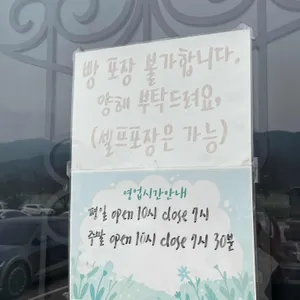 빵 포장 불가합니다.
양해 부탁드려요.
(셀프포장은 가능)
영업시간안내
평일 open 10시 close 7시
주말 open 10시 close 7시 30분